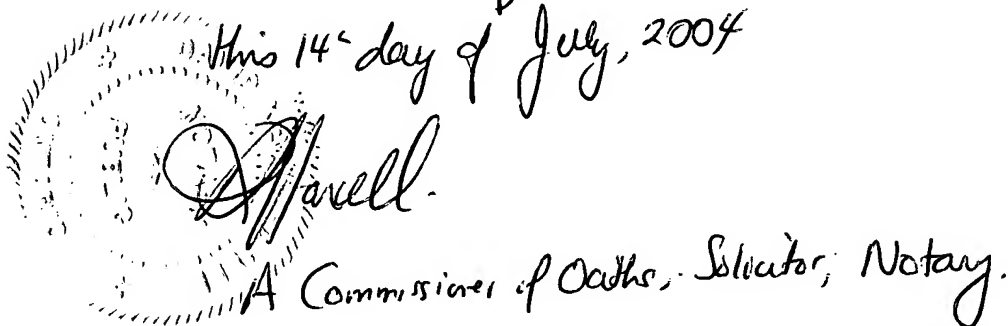 this 14ᶜ day of July, 2004
A Commissioner of Oaths, Solicitor, Notary.